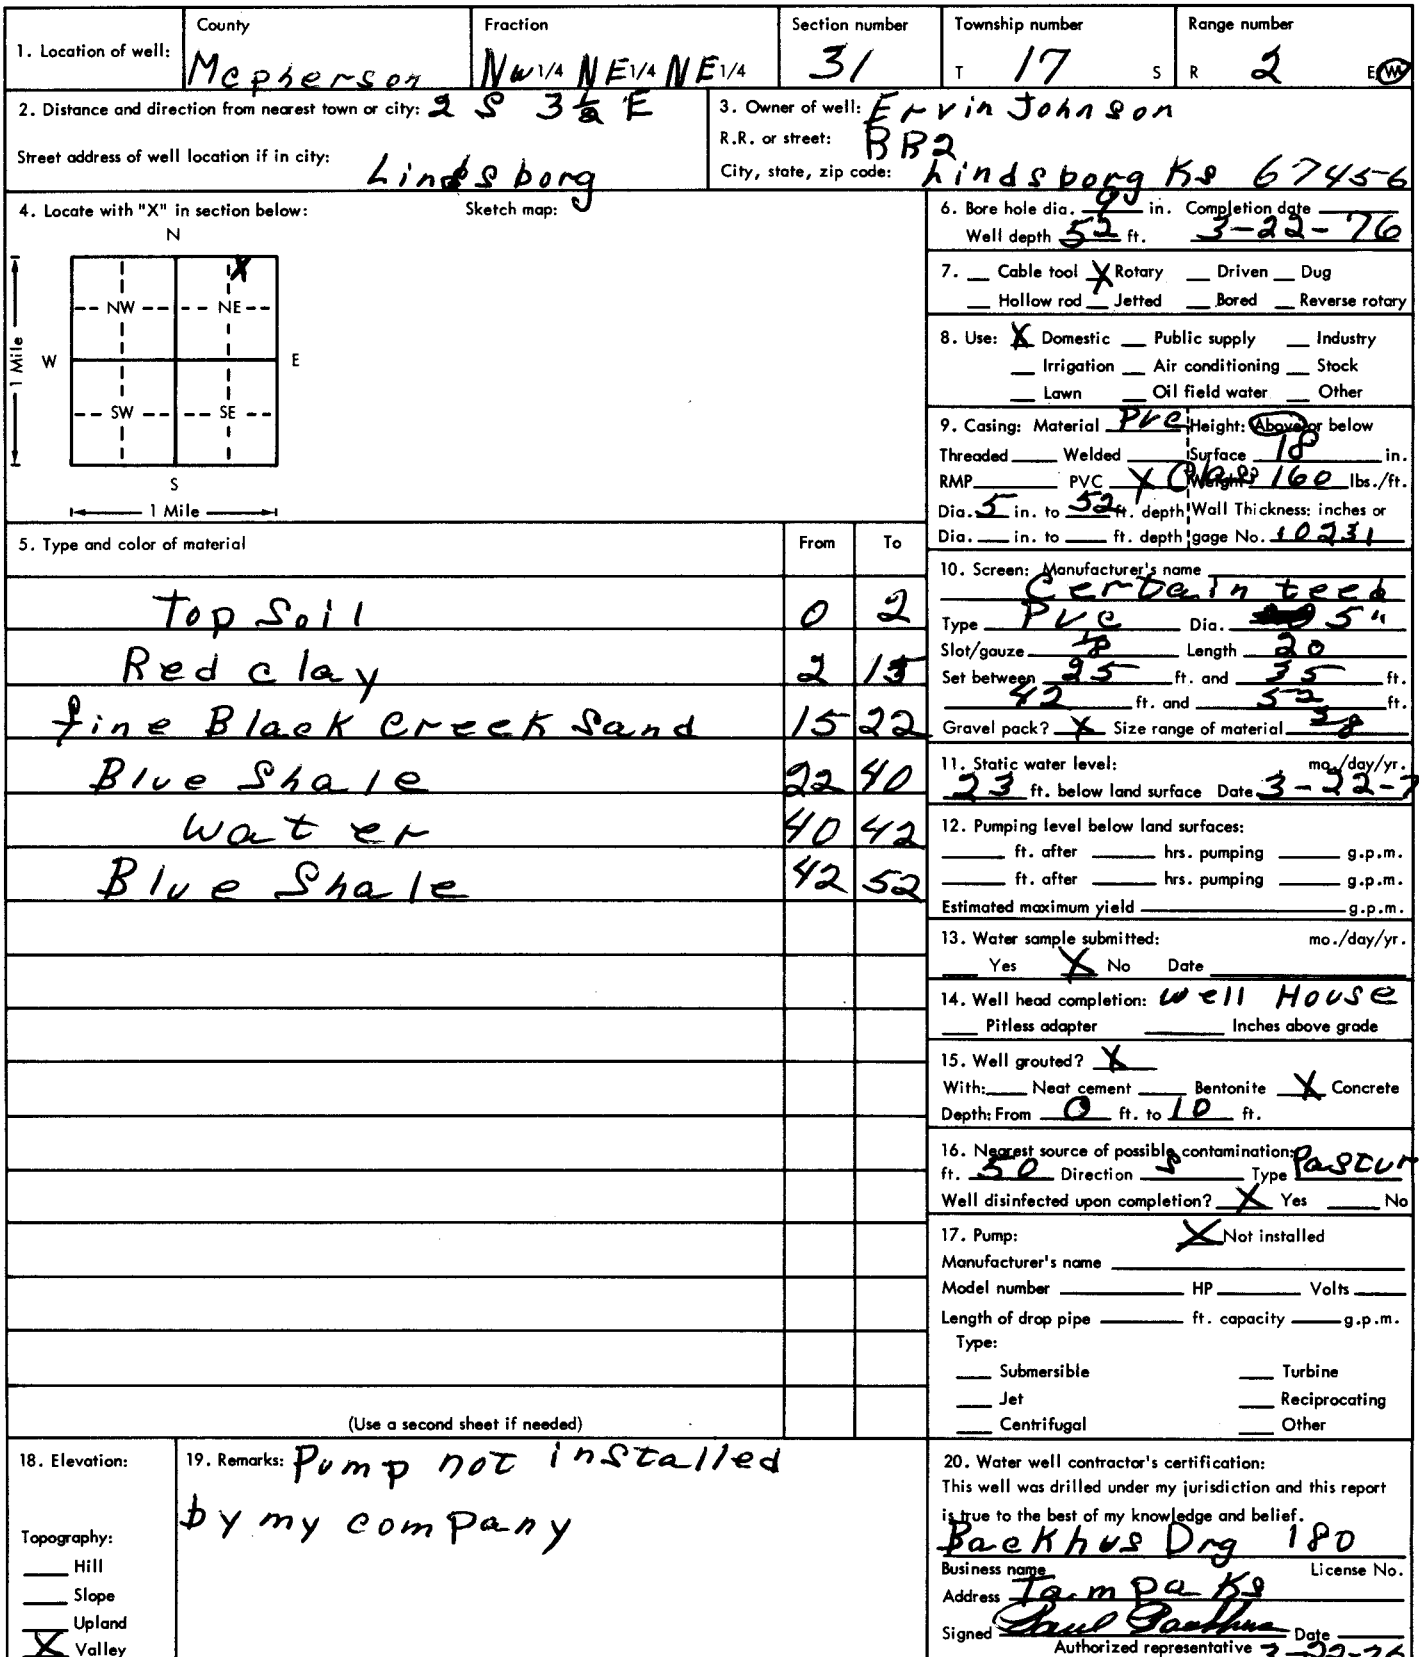 1. Location of well: County Mcpherson Fraction NW 1/4 NE 1/4 NE 1/4 Section number 31 Township number T 17 S Range number R 2 E W
2. Distance and direction from nearest town or city: 2 S 3 1/2 E
Street address of well location if in city: Lindsborg
3. Owner of well: Ervin Johnson
R.R. or street: RR2
City, state, zip code: Lindsborg Ks 67456
4. Locate with "X" in section below: Sketch map:
N
X
NW NE
W E
1 Mile
SW SE
S
1 Mile
5. Type and color of material From To
Top Soil 0 2
Red clay 2 15
fine Black Creek Sand 15 22
Blue Shale 22 40
water 40 42
Blue Shale 42 52
(Use a second sheet if needed)
6. Bore hole dia. 9 in. Completion date
Well depth 52 ft. 3-22-76
7. Cable tool X Rotary Driven Dug
Hollow rod Jetted Bored Reverse rotary
8. Use: X Domestic Public supply Industry
Irrigation Air conditioning Stock
Lawn Oil field water Other
9. Casing: Material PVC Height: Above or below
Threaded Welded Surface 18 in.
RMP PVC X Class Weight 160 lbs./ft.
Dia. 5 in. to 52 ft. depth Wall Thickness: inches or
Dia. in. to ft. depth gage No. 10231
10. Screen: Manufacturer's name
Certain teed
Type PVC Dia. 5"
Slot/gauze 1/8 Length 20
Set between 25 ft. and 35 ft.
42 ft. and 52 ft.
Gravel pack? X Size range of material
11. Static water level: mo./day/yr.
23 ft. below land surface Date 3-22-7
12. Pumping level below land surfaces:
ft. after hrs. pumping g.p.m.
ft. after hrs. pumping g.p.m.
Estimated maximum yield g.p.m.
13. Water sample submitted: mo./day/yr.
Yes X No Date
14. Well head completion: well House
Pitless adapter Inches above grade
15. Well grouted? X
With: Neat cement Bentonite X Concrete
Depth: From 0 ft. to 10 ft.
16. Nearest source of possible contamination:
ft. 50 Direction S Type Pastur
Well disinfected upon completion? X Yes No
17. Pump: X Not installed
Manufacturer's name
Model number HP Volts
Length of drop pipe ft. capacity g.p.m.
Type:
Submersible Turbine
Jet Reciprocating
Centrifugal Other
18. Elevation:
Topography:
Hill
Slope
Upland
X Valley
19. Remarks: Pump not installed
by my company
20. Water well contractor's certification:
This well was drilled under my jurisdiction and this report
is true to the best of my knowledge and belief.
Backhus Drg 180
Business name License No.
Address Tampa Ks
Signed Paul Backhus Date
Authorized representative 3-22-76